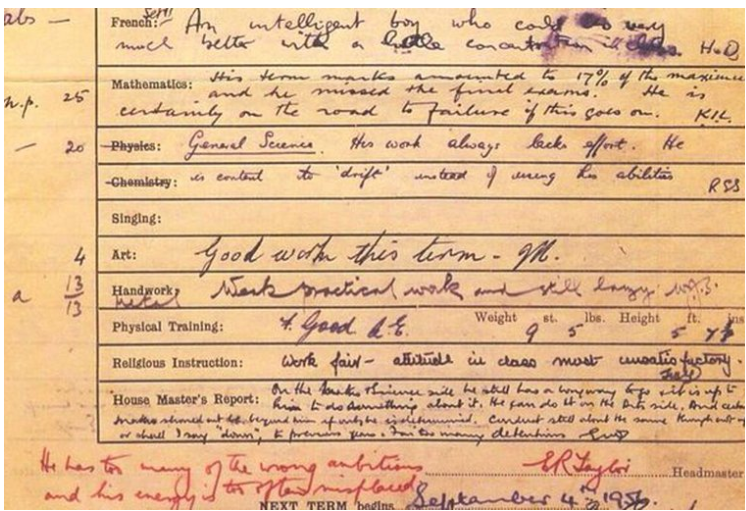 abs —
French: (Set II) An intelligent boy who could be very
much better with a little concentration in class. H.D
n.p. 25
Mathematics: His term marks amounted to 17% of the maximum
and he missed the final exams. He is
certainly on the road to failure if this goes on.
— 20
Physics: General Science. His work always lacks effort. He
Chemistry: is content to 'drift' instead of using his abilities RSS
Singing:
4 Art: Good work this term - M.
a 13/13 Handwork: metal Weak practical work and still lazy
Physical Training: F. Good A.E. Weight 9 st. 5 lbs. Height 5 ft. 7½ ins
Religious Instruction: Work fair - attitude in class most unsatisfactory.
House Master's Report: On the Maths & Science side he still has a long way to go & it is up to
him to do something about it. He can do it on the Arts side. And
Maths should not be beyond him if only he is determined. Conduct still about the same though
or shall I say "down", to previous years. Far too many detentions
He has too many of the wrong ambitions E R Taylor Headmaster
and his energy is too often misplaced
NEXT TERM begins September 4th 1956.